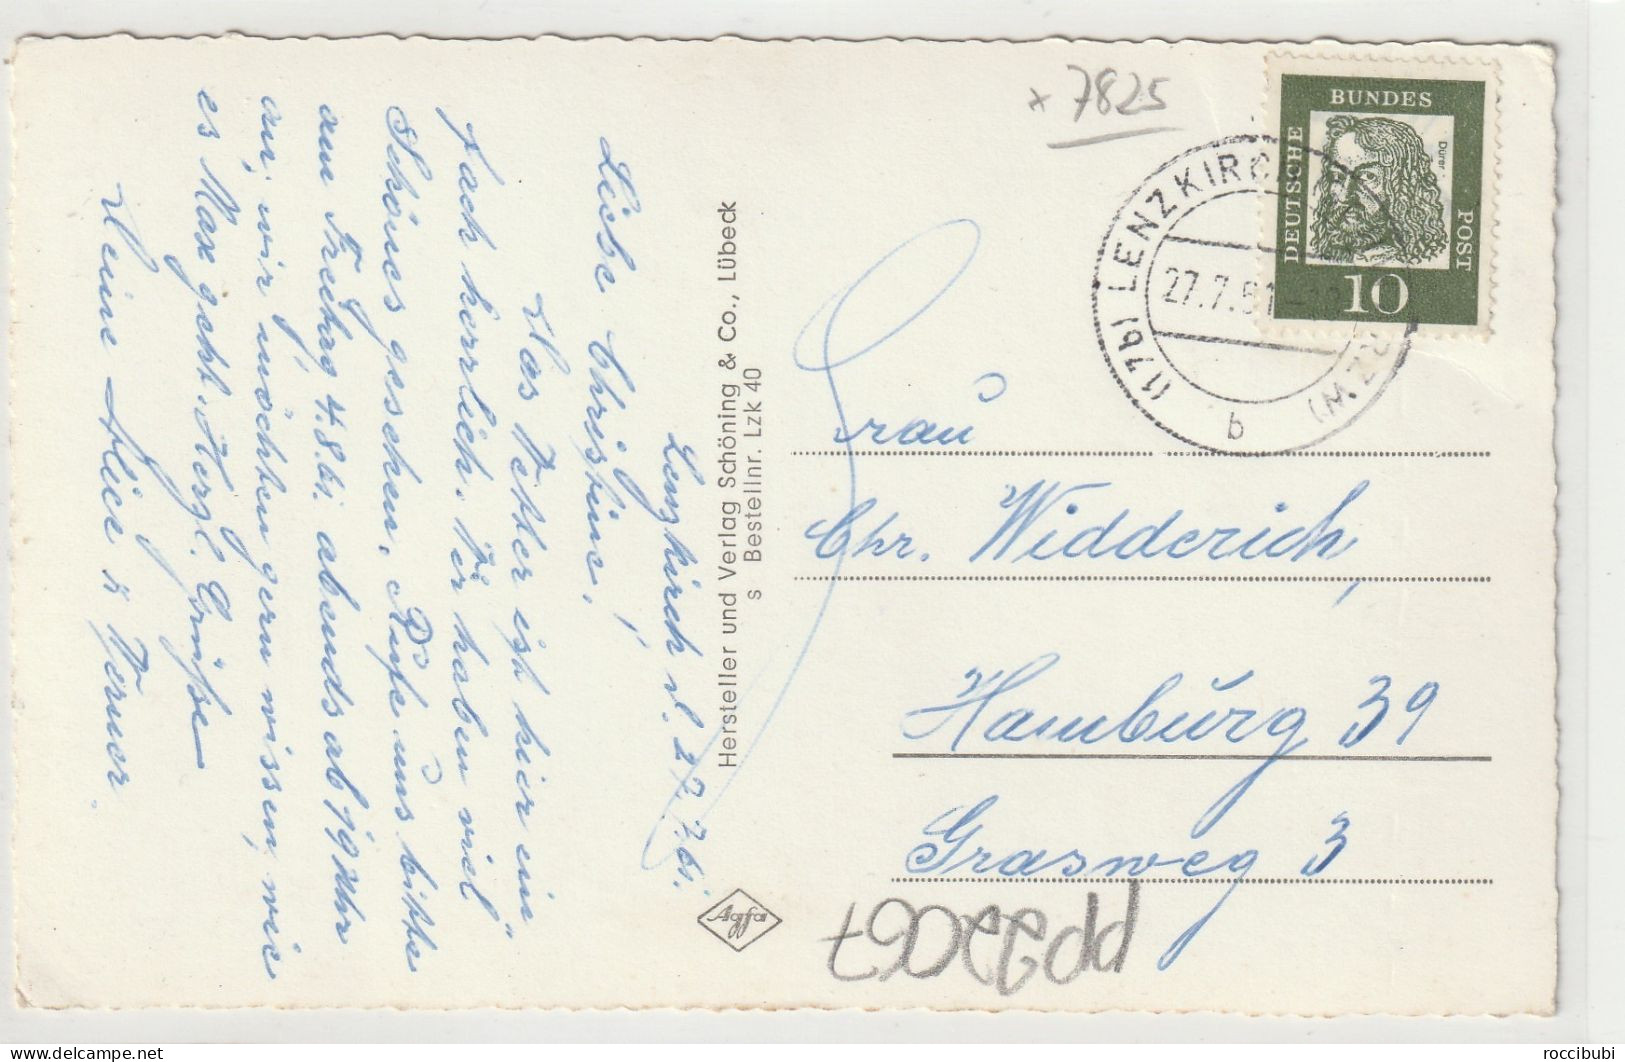 Lenzkirch d. 27.7.61.
Liebe Christine!
Das Wetter ist hier ein-
fach herrlich. Wir haben viel
Schönes gesehen. Rufe uns bitte
am Freitag 4.8.61. abends ab 19 Uhr
an, wir möchten gern wissen, wie
es Max geht. Herzl. Grüße
Deine Alice & Werner.
Hersteller und Verlag Schöning & Co., Lübeck
s Bestellnr. Lzk 40
Agfa
x 7825
DEUTSCHE
BUNDES
POST
Dürer
10
(17b) LENZKIRCH
27.7.61
b
Frau
Chr. Widderich,
Hamburg 39
Grasweg 3
pp22067
roccibubi